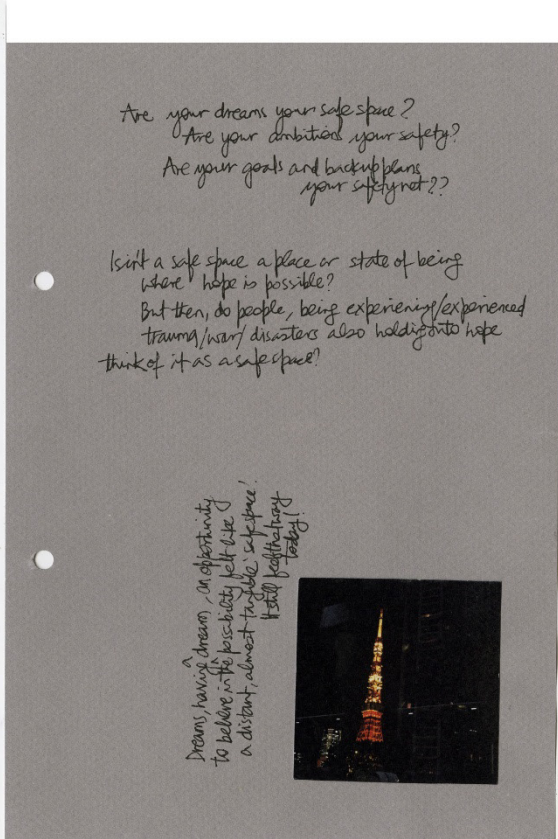 Are your dreams your safe space?
Are your ambitions your safety?
Are your goals and backup plans
your safety net??
Isn't a safe space a place or state of being
where hope is possible?
But then, do people, being experiening/experienced
trauma/war/disasters also holding onto hope
think of it as a safe space?
Dreams, having dream, an opportunity
to believe in the possibility felt like
a distant, almost 'tangible' safe space.
It still feels that way
today!